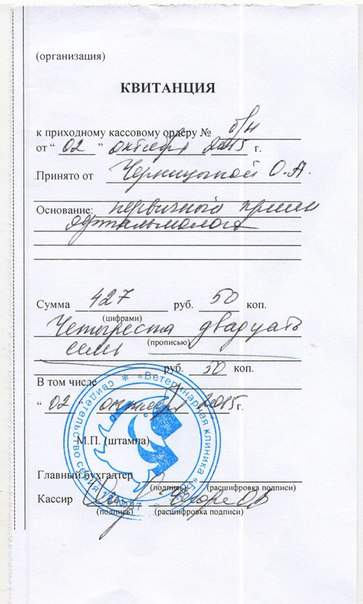 (организация)
КВИТАНЦИЯ
к приходному кассовому ордеру № б/н
от “ 02 ” октября 2015 г.
Принято от О.А.
Основание: первичный прием
офтальмолога
Сумма 427 руб. 50 коп.
(цифрами)
Четыреста двадцать
(прописью)
семь руб. 50 коп.
В том числе
“ 02 ” октября 2015г.
М.П. (штампа)
Главный бухгалтер
(подпись) (расшифровка подписи)
Кассир
(подпись) (расшифровка подписи)
«Ветеринарная клиника»
свидетельство